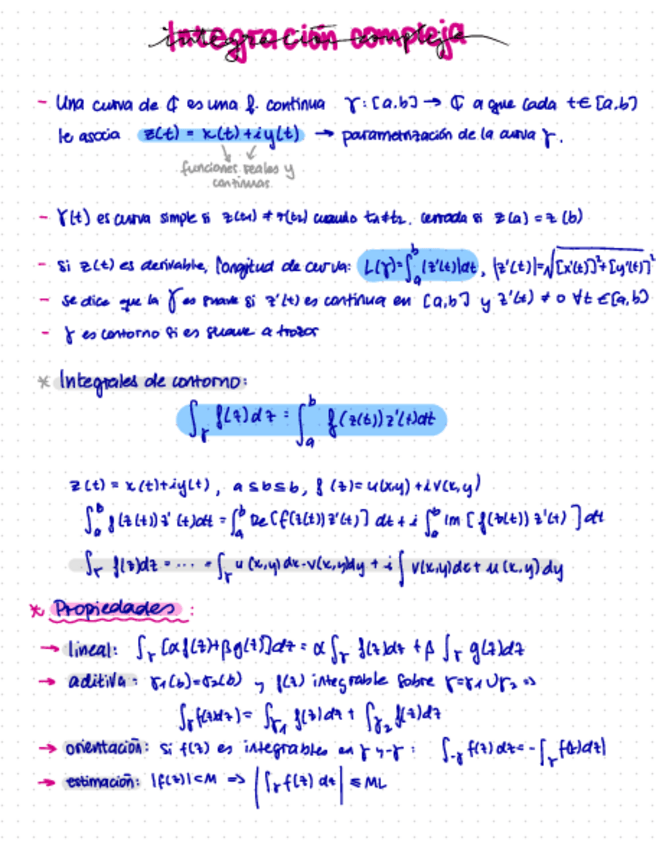 Integración compleja
- Una curva de ℂ es una f. continua γ: [a,b] → ℂ a que cada t ∈ [a,b]
le asocia z(t) = x(t) + iy(t) → parametrización de la curva γ.
funciones reales y
continuas
- γ(t) es curva simple si z(t1) ≠ z(t2) cuando t1≠t2. cerrada si z(a) = z(b)
- Si z(t) es derivable, longitud de curva: L(γ)=∫_a^b |z'(t)|dt, |z'(t)|=√([x'(t)]²+[y'(t)]²)
- Se dice que la γ es suave si z'(t) es continua en [a,b] y z'(t) ≠ 0 ∀t ∈ [a,b]
- γ es contorno si es suave a trozos
* Integrales de contorno:
∫_γ f(z)dz = ∫_a^b f(z(t)) z'(t)dt
z(t) = x(t)+iy(t), a ≤ b ≤ b, f(z) = u(x,y) + iv(x,y)
∫_a^b f(z(t)) z'(t)dt = ∫_a^b Re[f(z(t)) z'(t)] dt + i ∫_a^b Im [f(z(t)) z'(t)] dt
∫_γ f(z)dz = ... = ∫_γ u(x,y)dx - v(x,y)dy + i ∫ v(x,y)dx + u(x,y)dy
* Propiedades:
→ lineal: ∫_γ [αf(z)+βg(z)]dz = α∫_γ f(z)dz + β ∫_γ g(z)dz
→ aditiva: γ1(b)=γ2(b) y f(z) integrable sobre γ=γ1∪γ2 =>
∫_γ f(z)dz = ∫_γ1 f(z)dz + ∫_γ2 f(z)dz
→ orientación: si f(z) es integrables en γ y -γ: ∫_-γ f(z)dz = -∫_γ f(z)dz
→ estimación: |f(z)|<M => |∫_γ f(z) dz| ≤ ML